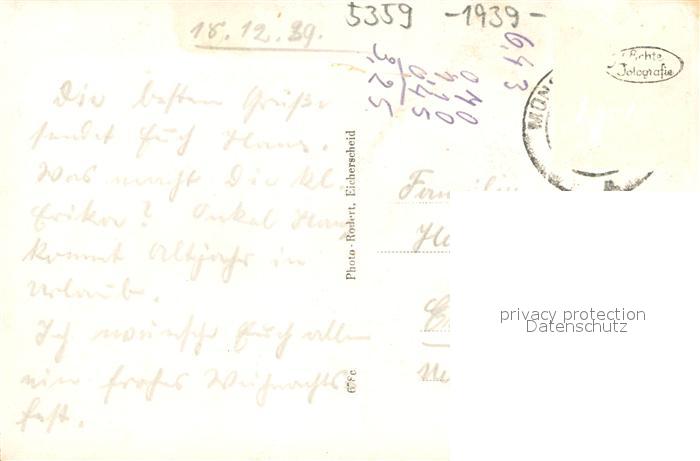 5359 -1939-
18.12.39.
Die besten Grüße
sendet Euch Hans.
Was macht die kl.
Erika? Onkel Hans
kommt Altjahr in
Urlaub.
Ich wünsche Euch allen
ein frohes Weihnachts
fest.
Photo-Rodert, Eicherscheid
643
Echte
Fotografie
Familie
privacy protection
Datenschutz